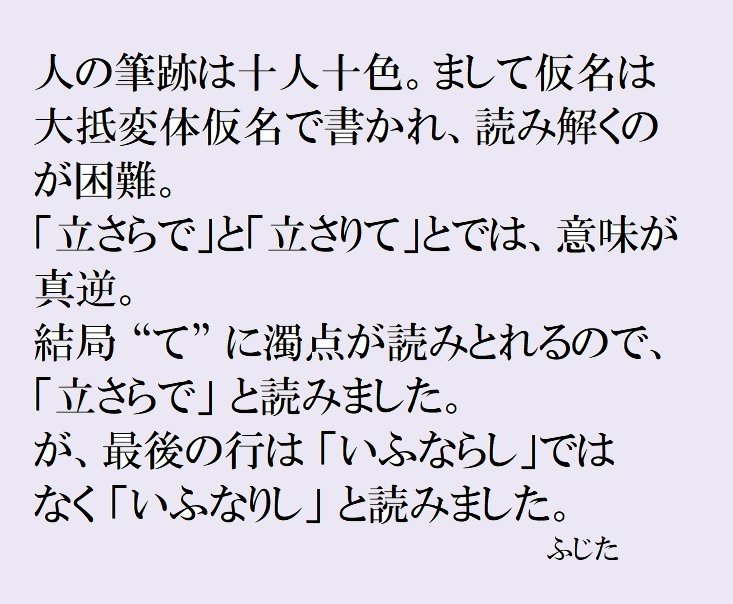 人の筆跡は十人十色。まして仮名は
大抵変体仮名で書かれ、読み解くの
が困難。
「立さらで」と「立さりて」とでは、意味が
真逆。
結局 “て” に濁点が読みとれるので、
「立さらで」 と読みました。
が、最後の行は 「いふならし」では
なく 「いふなりし」 と読みました。
ふじた